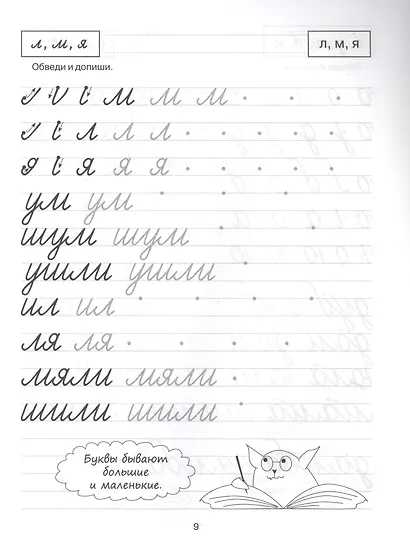 л, м, я
л, м, я
Обведи и допиши.
м м м
л л л л
я я я я
ум ум
шум шум
ушли ушли
ил ил
ля ля
мяли мяли
шили шили
Буквы бывают
большие
и маленькие.
9